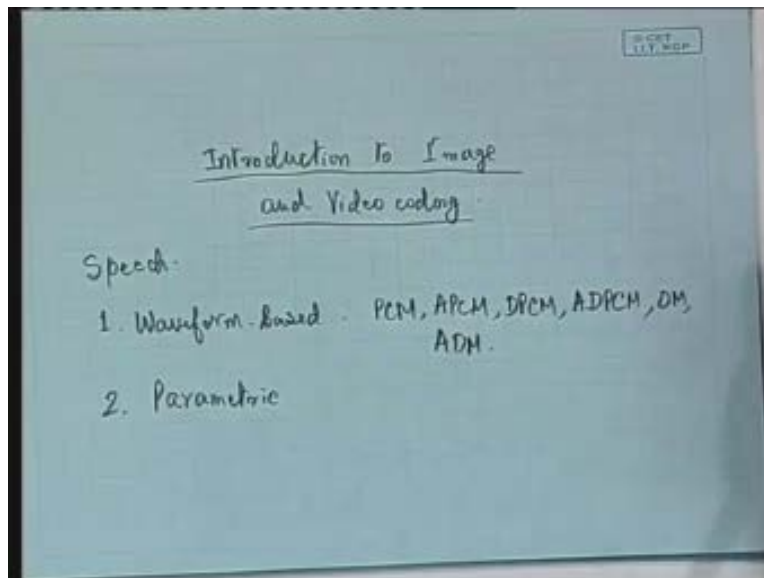 © CET
I.I.T. KGP
Introduction to Image
and Video coding.
Speech.
1. Waveform-based. PCM, APCM, DPCM, ADPCM, DM,
ADM.
2. Parametric